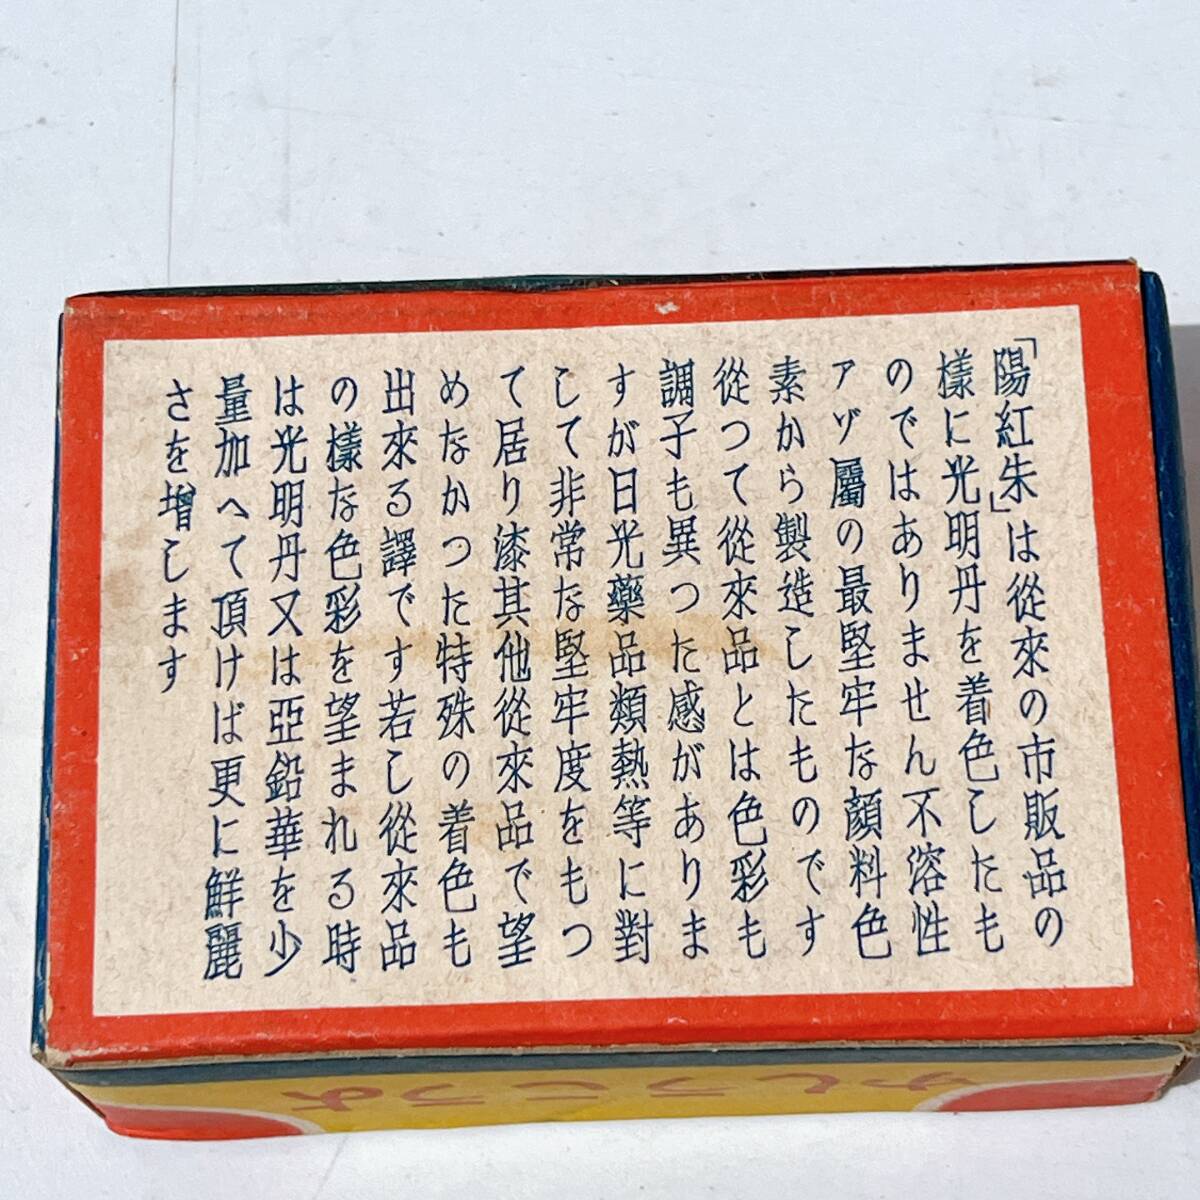 「陽紅朱」は從來の市販品の
樣に光明丹を着色したも
のではありません不溶性
アゾ屬の最堅牢な顏料色
素から製造したものです
從つて從來品とは色彩も
調子も異つた感がありま
すが日光藥品類熱等に對
して非常な堅牢度をもつ
て居り漆其他從來品で望
めなかつた特殊の着色も
出來る譯です若し從來品
の樣な色彩を望まれる時
は光明丹又は亞鉛華を少
量加へて頂けば更に鮮麗
さを增します